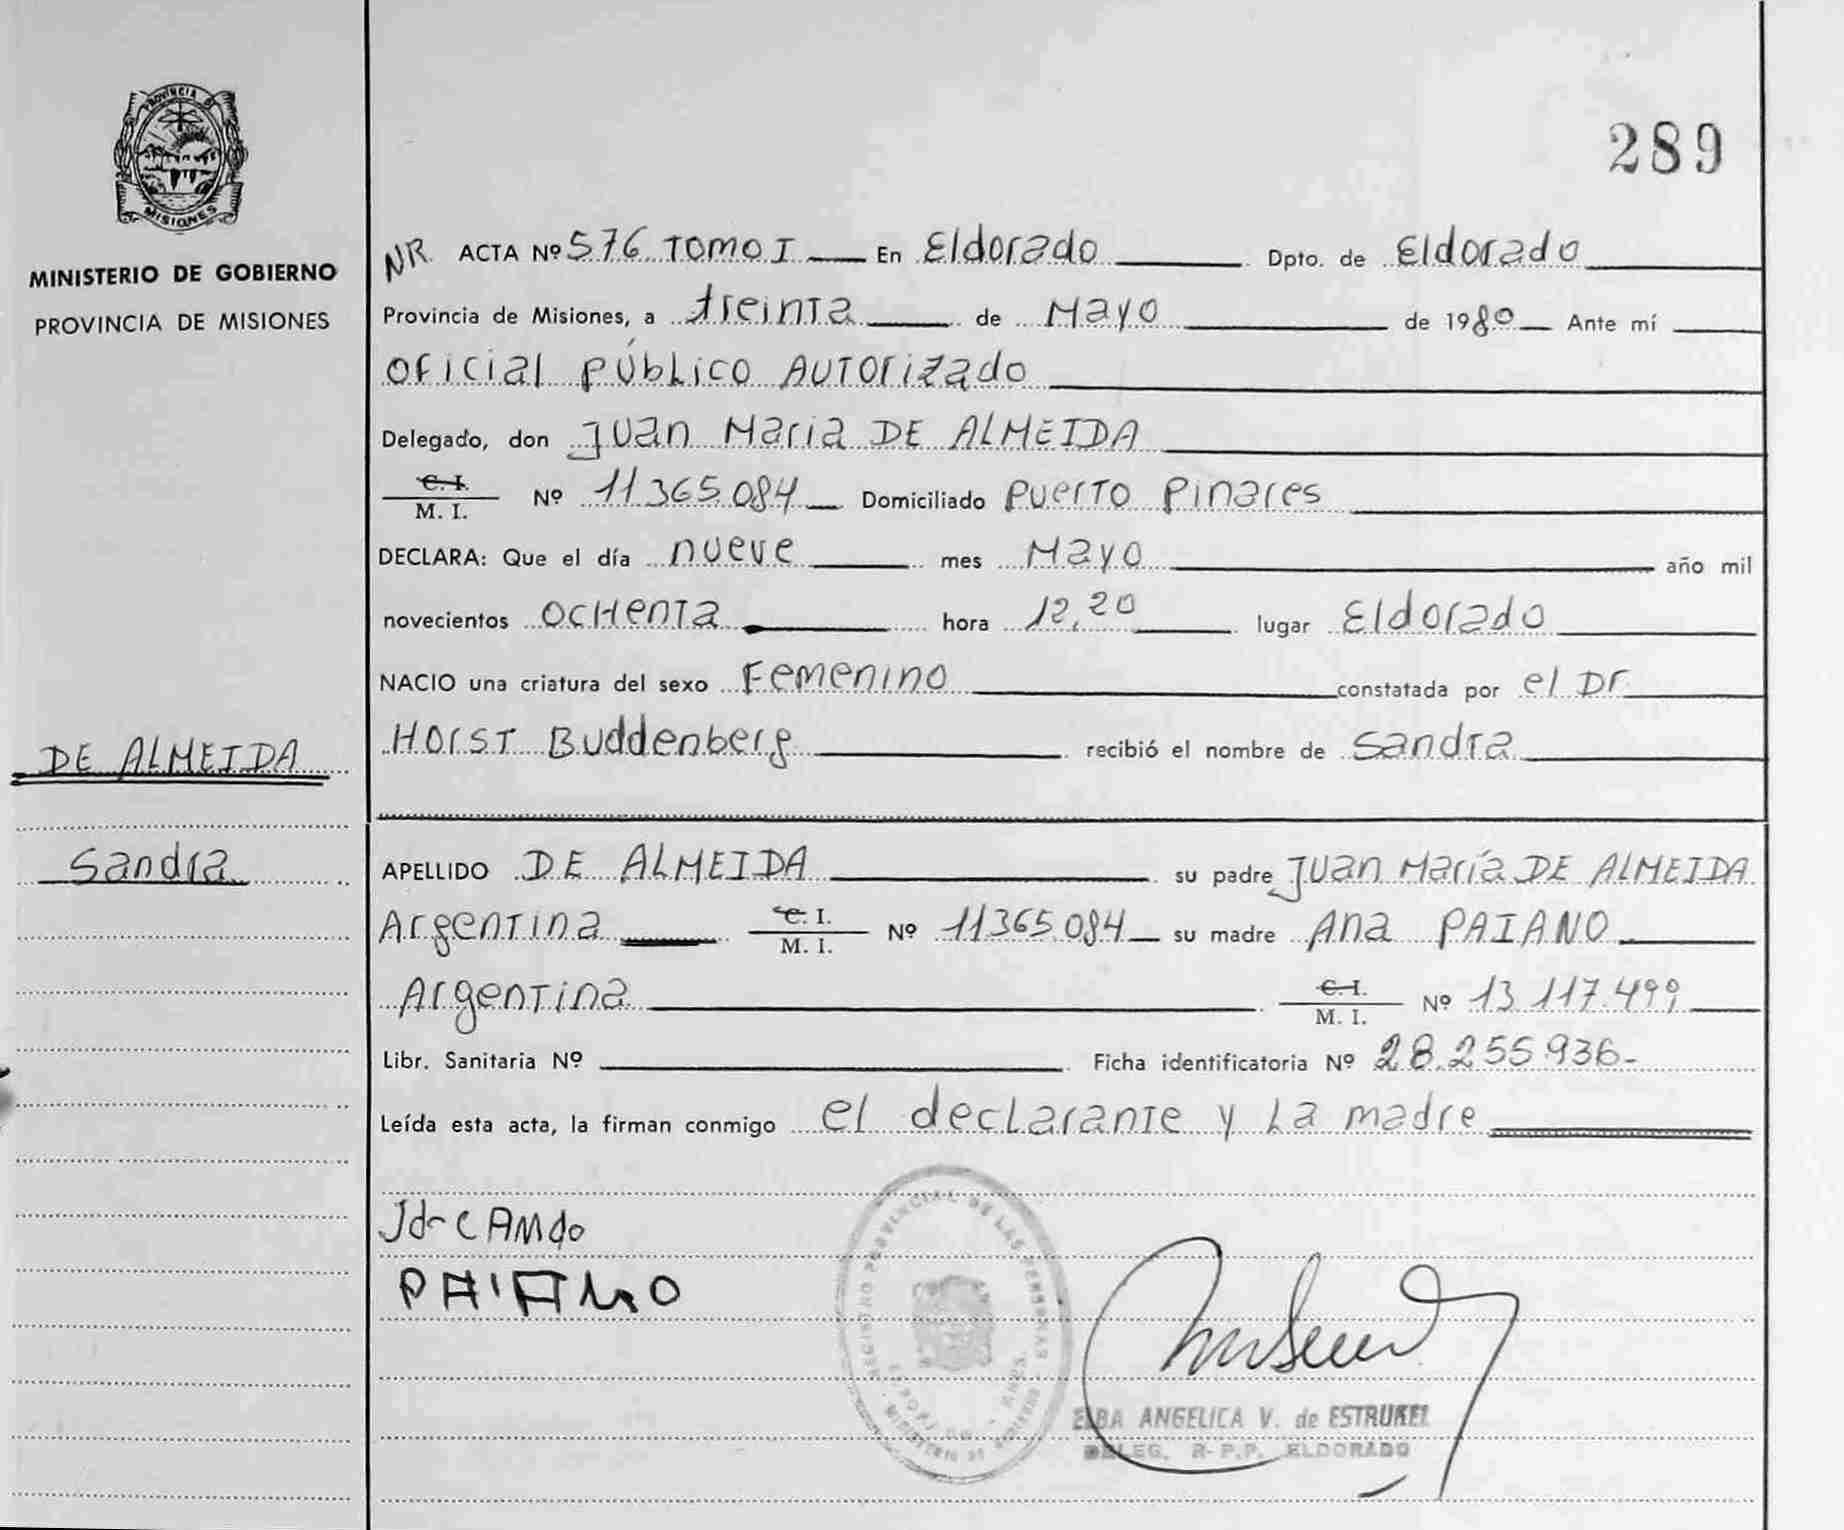 PROVINCIA DE
MISIONES
MINISTERIO DE GOBIERNO
PROVINCIA DE MISIONES
DE ALMEIDA
Sandra
289
NR. ACTA Nº 576 TOMO I En Eldorado Dpto. de Eldorado
Provincia de Misiones, a treinta de Mayo de 1980 Ante mí
oficial público Autorizado
Delegado, don Juan Maria DE ALMEIDA
C. I. / M. I. Nº 11.365.084 Domiciliado Puerto Pinares
DECLARA: Que el día nueve mes Mayo año mil
novecientos ochenta hora 12,20 lugar Eldorado
NACIO una criatura del sexo Femenino constatada por el Dr
Horst Buddenberg recibió el nombre de Sandra
APELLIDO DE ALMEIDA su padre Juan María DE ALMEIDA
Argentina C. I. / M. I. Nº 11365.084 su madre Ana PAIANO
Argentina C. I. / M. I. Nº 13.117.499
Libr. Sanitaria Nº Ficha identificatoria Nº 28.255.936-
Leída esta acta, la firman conmigo el declarante y la madre
PAIANO
REGISTRO PROVINCIAL DE LAS PERSONAS
MINISTERIO DE GOBIERNO
ELBA ANGELICA V. de ESTRUKEL
DELEG. R-P.P. ELDORADO